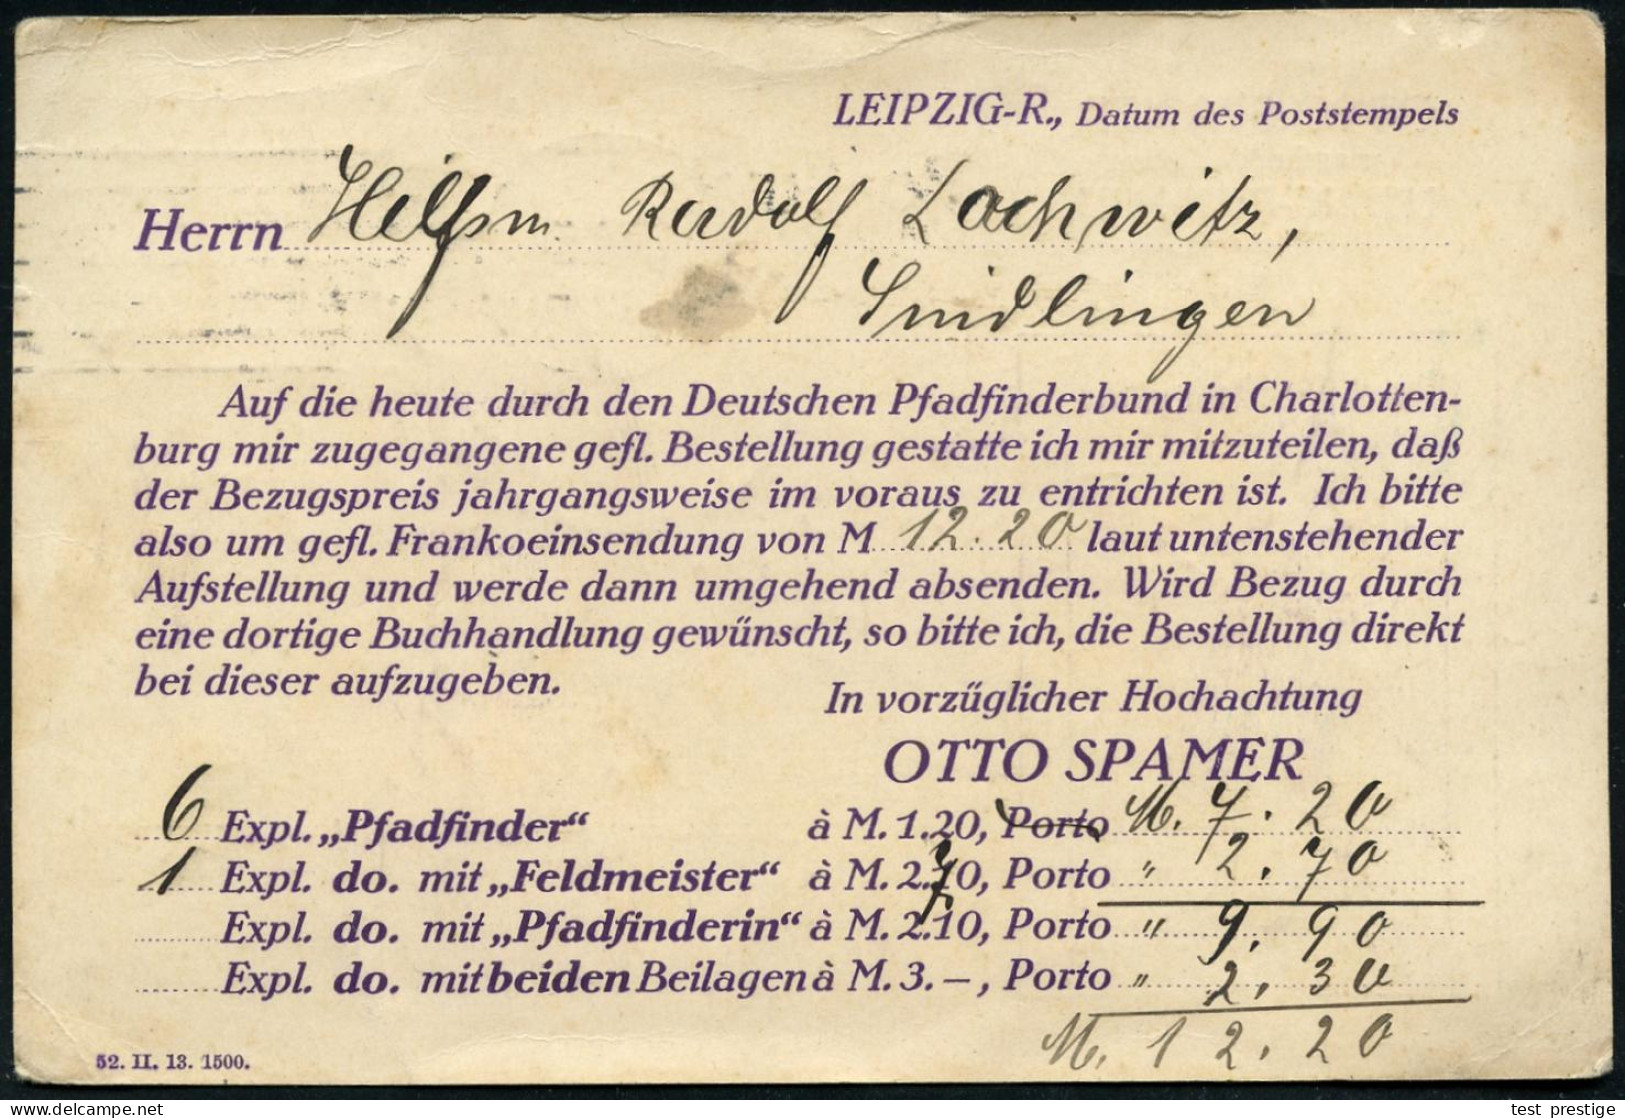 LEIPZIG-R., Datum des Poststempels
Herrn Hilfsm. Rudolf Lochwitz,
Sindlingen
Auf die heute durch den Deutschen Pfadfinderbund in Charlotten-
burg mir zugegangene gefl. Bestellung gestatte ich mir mitzuteilen, daß
der Bezugspreis jahrgangsweise im voraus zu entrichten ist. Ich bitte
also um gefl. Frankoeinsendung von M 12.20 laut untenstehender
Aufstellung und werde dann umgehend absenden. Wird Bezug durch
eine dortige Buchhandlung gewünscht, so bitte ich, die Bestellung direkt
bei dieser aufzugeben.
In vorzüglicher Hochachtung
OTTO SPAMER
6 Expl. „Pfadfinder“ à M. 1.20, Porto M. 7.20
1 Expl. do. mit „Feldmeister“ à M. 2.70, Porto " 2.70
Expl. do. mit „Pfadfinderin“ à M. 2.10, Porto " 9.90
Expl. do. mit beiden Beilagen à M. 3.–, Porto " 2.30
M. 12.20
52. II. 13. 1500.
test prestige